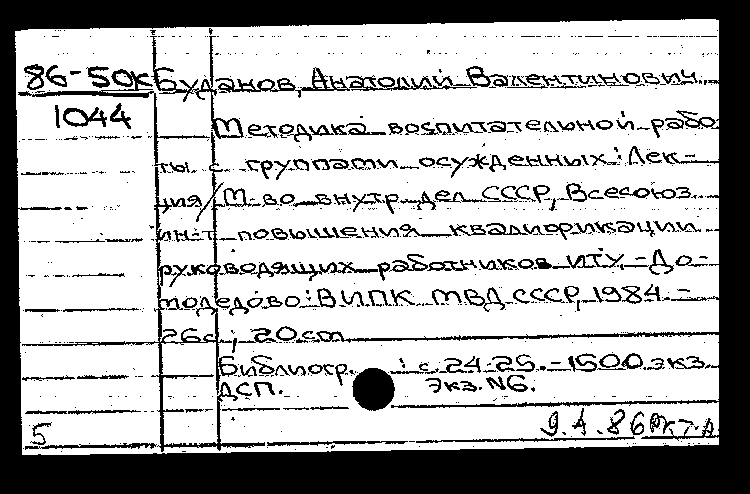 86-50к Буданов, Анатолий Валентинович.
1044
Методика воспитательной рабо
ты с группами осужденных: Лек-
ция/М-во внутр. дел СССР, Всесоюз.
ин-т повышения квалификации
руководящих работников ИТУ.-До-
модедово: ВИПК МВД СССР, 1984.-
26с.; 20см
Библиогр. : с.24-25.-1500 экз.
ДСП. Экз.N6.
5 9.4.86